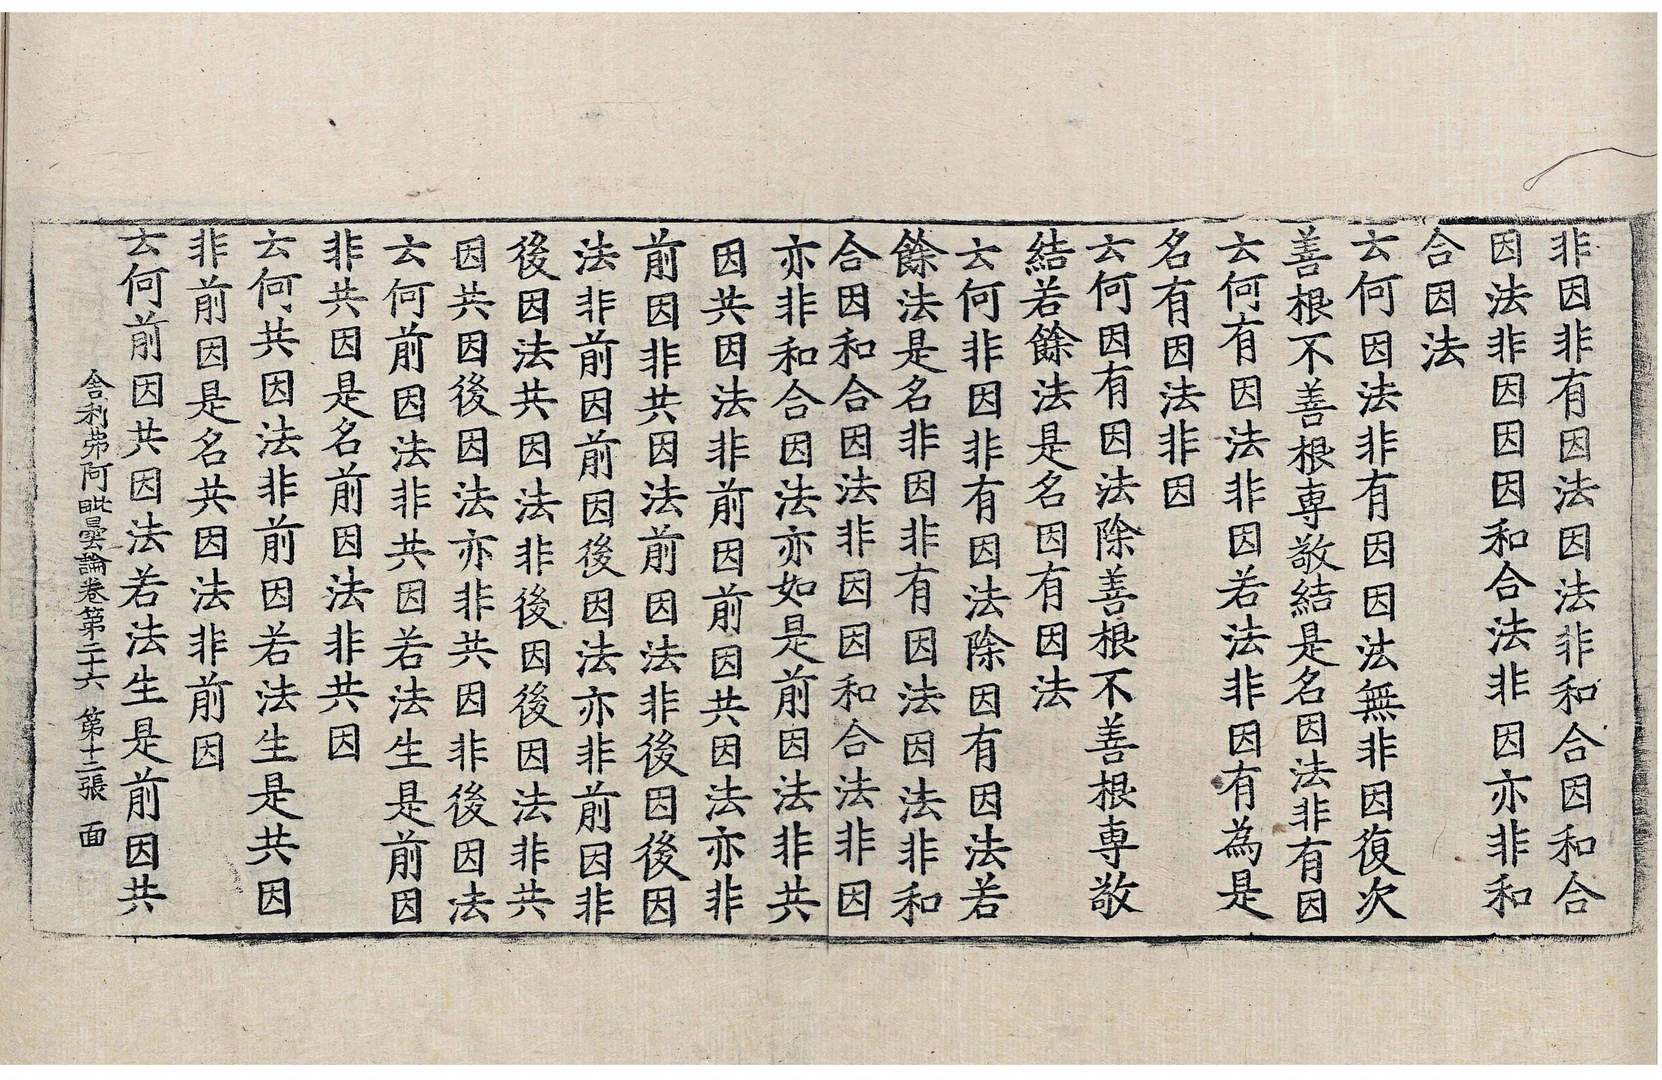 非因非有因法因法非和合因和合
因法非因因因和合法非因亦非和
合因法
云何因法非有因因法無非因復次
善根不善根専敬結是名因法非有因
云何有因法非因若法非因有為是
名有因法非因
云何因有因法除善根不善根専敬
結若餘法是名因有因法
云何非因非有因法除因有因法若
餘法是名非因非有因法因法非和
合因和合因法非因因和合法非因
亦非和合因法亦如是前因法非共
因共因法非前因前因共因法亦非
前因非共因法前因法非後因後因
法非前因前因後因法亦非前因非
後因法共因法非後因後因法非共
因共因後因法亦非共因非後因法
云何前因法非共因若法生是前因
非共因是名前因法非共因
云何共因法非前因若法生是共因
非前因是名共因法非前因
云何前因共因法若法生是前因共
舍利弗阿毗曇論卷第二十六 第十二張 面